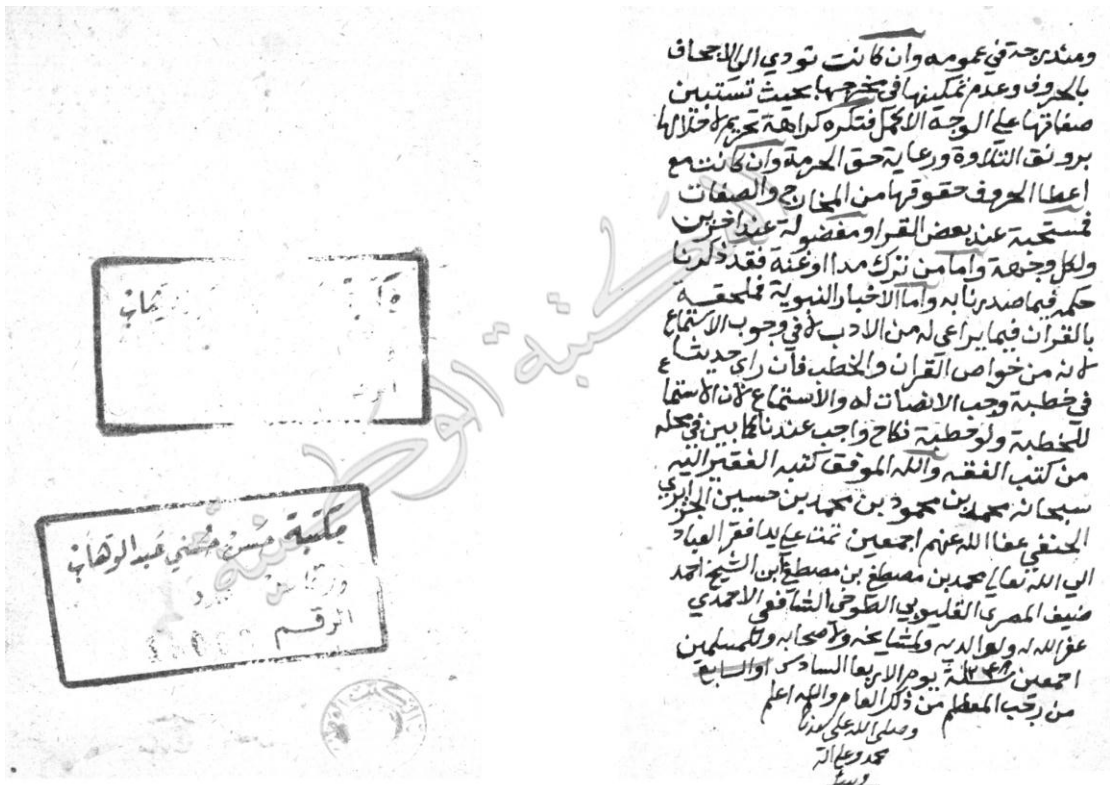 ومندرجة في عمومه وان كانت تودي الى الاجحاف
بالحروف وعدم تمكينها في مخرجها بحيث تستبين
صفاتها على الوجه الاكمل فتكره كراهة تحريم لاخلالها
برونق التلاوة ورعاية حق الحرمة وان كانت مع
اعطا الحروف حقوقها من المخارج والصفات
فمستحبة عند بعض القرا ومفضولة عند اخرين
ولكل وجهة واما من ترك مدا او غنة فقد ذكرنا
حكمه فيما صدرنا به واما الاخبار النبوية فملحقة
بالقران فيما يراعى له من الادب لا في وجوب الاستماع
لانه من خواص القران والخطب فان راي حديثا
في خطبة وجب الانصات له والاستماع لان الاستماع
للخطبة ولو خطبة نكاح واجب عندنا كما بين في محله
من كتب الفقه والله الموفق كتبه الفقير اليه
سبحانه محمد بن محمود بن محمد بن حسين الجزايري
الحنفي عفا الله عنهم اجمعين تمت على يد افقر العباد
الى الله تعالى محمد بن مصطفى بن مصطفى ابن الشيخ احمد
ضيف المصري القليوبي الطوخي الشافعي الاحمدي
غفر الله له ولوالديه ولمشايخه ولاصحابه وللمسلمين
اجمعين سنة ١٢٤٨ يوم الاربعا السادس او السابع
من رجب المعظم من ذلك العام والله اعلم
وصلى الله على سيدنا
محمد وعلى اله
المكتبة الوطنية
مكتبة حسن حسني عبد الوهاب
الرقم